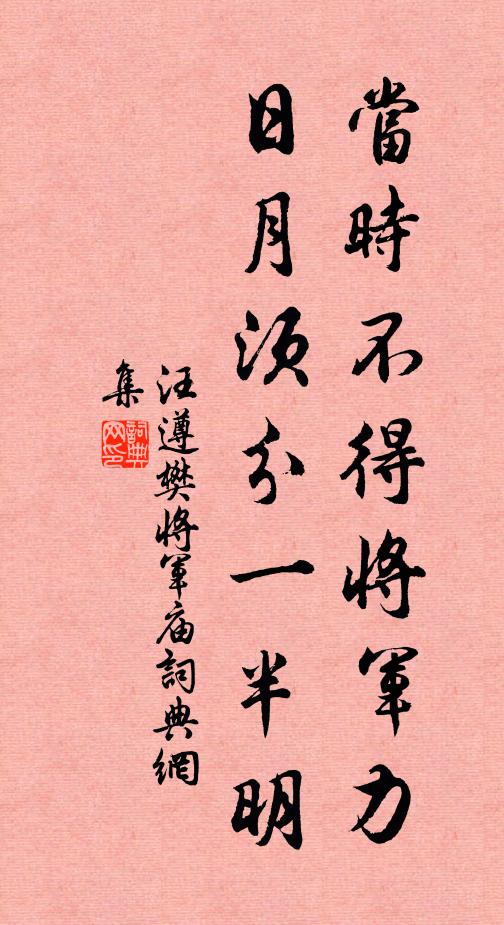 當時不得將軍力
日月須分一半明
汪遵樊將軍庙詞典網
集
詞典
网印